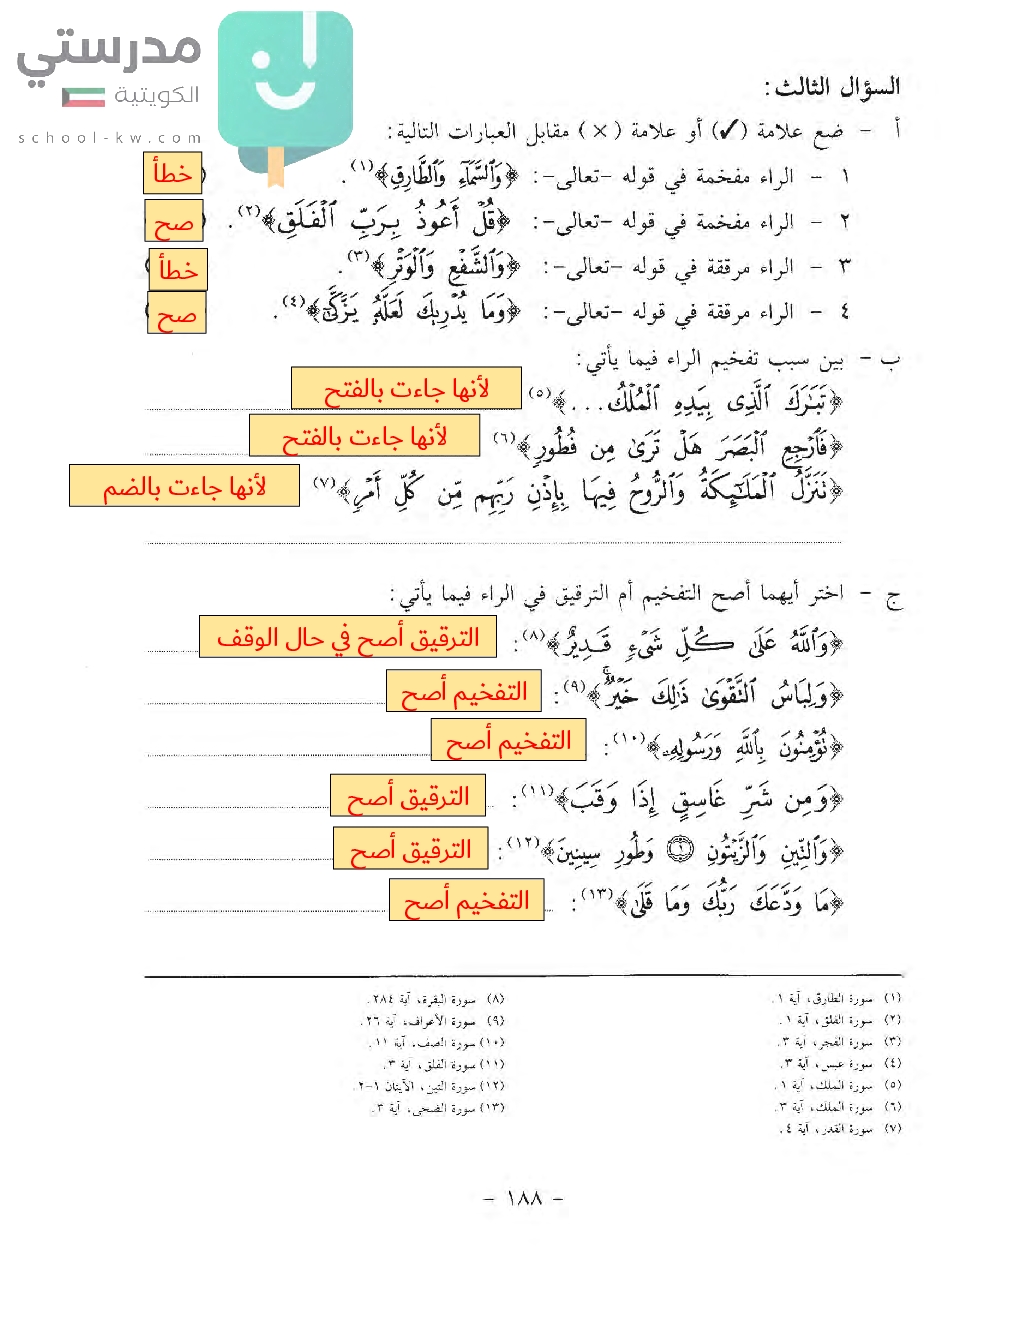 مدرستي
الكويتية
school-kw.com
السؤال الثالث:
أ - ضع علامة (✓) أو علامة (×) مقابل العبارات التالية:
١ - الراء مفخمة في قوله -تعالى-: ﴿وَٱلسَّمَآءِ وَٱلطَّارِقِ﴾(١). خطأ
٢ - الراء مفخمة في قوله -تعالى-: ﴿قُلْ أَعُوذُ بِرَبِّ ٱلْفَلَقِ﴾(٢). صح
٣ - الراء مرققة في قوله -تعالى-: ﴿وَٱلشَّفْعِ وَٱلْوَتْرِ﴾(٣). خطأ
٤ - الراء مرققة في قوله -تعالى-: ﴿وَمَا يُدْرِيكَ لَعَلَّهُۥ يَزَّكَّىٰٓ﴾(٤). صح
ب - بين سبب تفخيم الراء فيما يأتي:
﴿تَبَٰرَكَ ٱلَّذِى بِيَدِهِ ٱلْمُلْكُ...﴾(٥) لأنها جاءت بالفتح
﴿فَٱرْجِعِ ٱلْبَصَرَ هَلْ تَرَىٰ مِن فُطُورٍ﴾(٦) لأنها جاءت بالفتح
﴿تَنَزَّلُ ٱلْمَلَٰٓئِكَةُ وَٱلرُّوحُ فِيهَا بِإِذْنِ رَبِّهِم مِّن كُلِّ أَمْرٍ﴾(٧) لأنها جاءت بالضم
ج - اختر أيهما أصح التفخيم أم الترقيق في الراء فيما يأتي:
﴿وَٱللَّهُ عَلَىٰ كُلِّ شَىْءٍ قَدِيرٌ﴾(٨): الترقيق أصح في حال الوقف
﴿وَلِبَاسُ ٱلتَّقْوَىٰ ذَٰلِكَ خَيْرٌ ۚ﴾(٩): التفخيم أصح
﴿تُؤْمِنُونَ بِٱللَّهِ وَرَسُولِهِۦ﴾(١٠): التفخيم أصح
﴿وَمِن شَرِّ غَاسِقٍ إِذَا وَقَبَ﴾(١١): الترقيق أصح
﴿وَٱلتِّينِ وَٱلزَّيْتُونِ ۝١ وَطُورِ سِينِينَ﴾(١٢): الترقيق أصح
﴿مَا وَدَّعَكَ رَبُّكَ وَمَا قَلَىٰ﴾(١٣): التفخيم أصح
(١) سورة الطارق، آية ١.
(٢) سورة الفلق، آية ١.
(٣) سورة الفجر، آية ٣.
(٤) سورة عبس، آية ٣.
(٥) سورة الملك، آية ١.
(٦) سورة الملك، آية ٣.
(٧) سورة القدر، آية ٤.
(٨) سورة البقرة، آية ٢٨٤.
(٩) سورة الأعراف، آية ٢٦.
(١٠) سورة الصف، آية ١١.
(١١) سورة الفلق، آية ٣.
(١٢) سورة التين، الآيتان ١-٢.
(١٣) سورة الضحى، آية ٣.
- ١٨٨ -